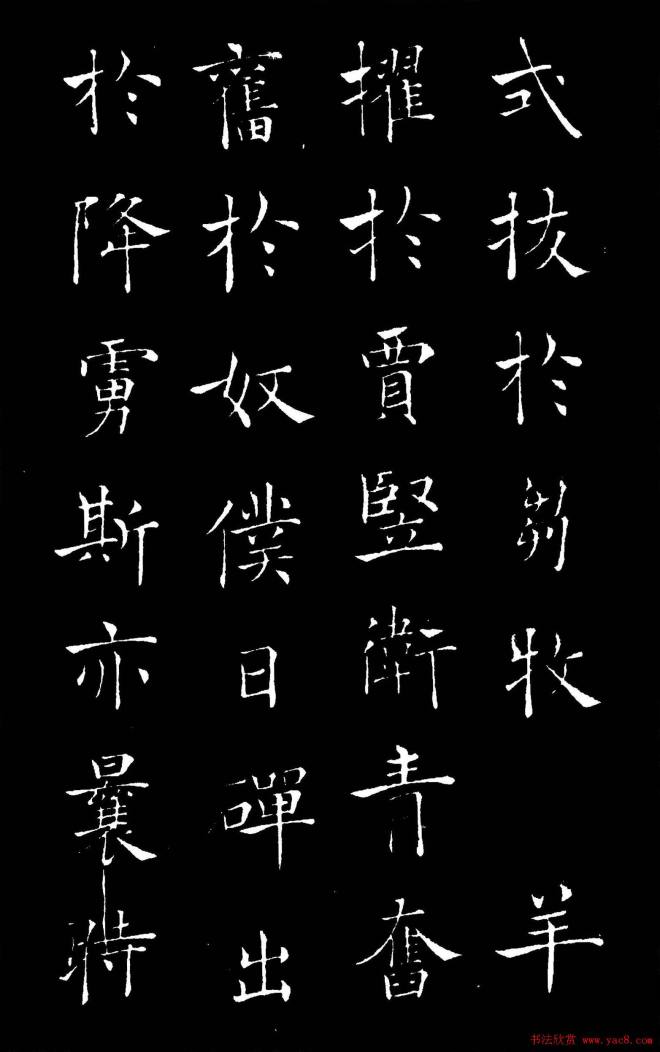 式拔於芻牧羊
擢於賈豎衛青奮
奮於奴僕日磾出
於降虜斯亦曩時
书法欣赏 www.yac8.com